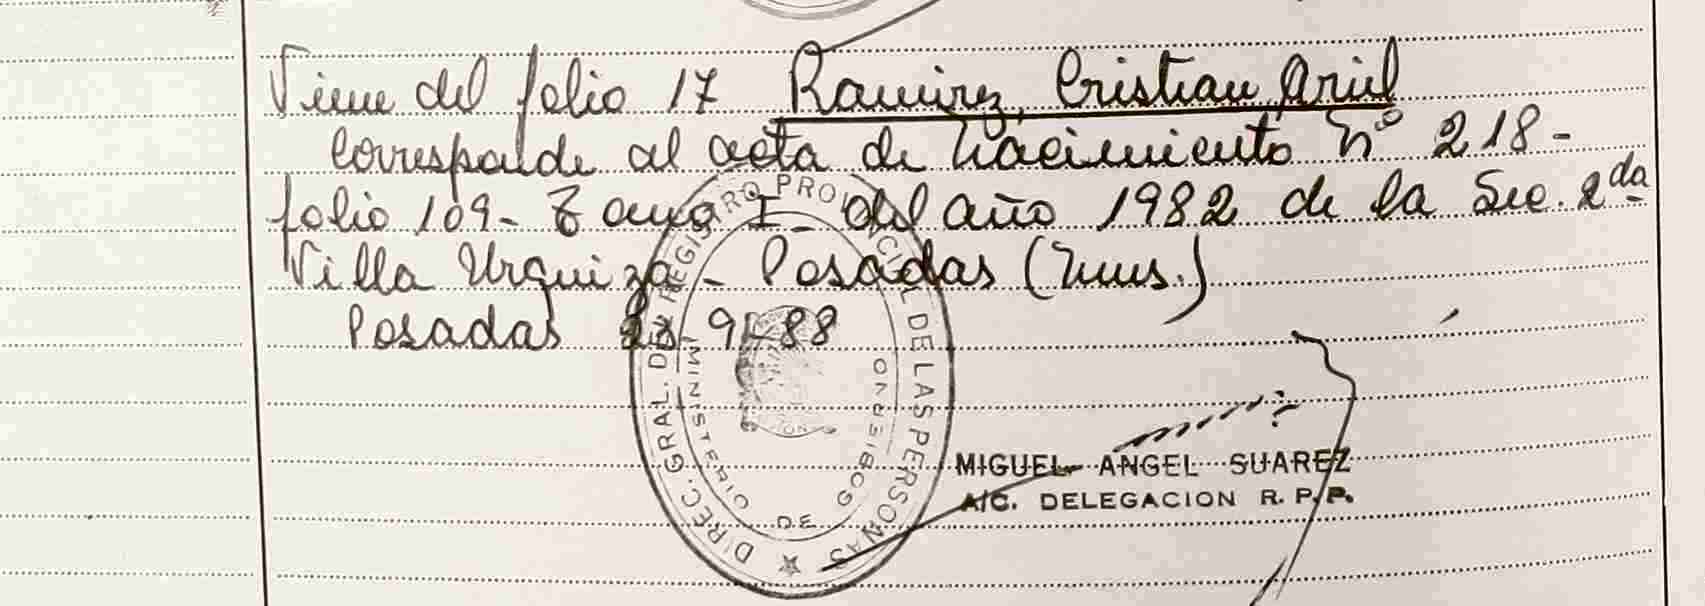 Viene del folio 17 Ramirez, Cristian Ariel
Corresponde al acta de Nacimiento Nº 218-
folio 109- Tomo I- del año 1982 de la Sec. 2da-
Villa Urquiza - Posadas (Mnes.)
Posadas 9-88
DIREC. GRAL. DE REGISTRO PROVINCIAL DE LAS PERSONAS
MINISTERIO DE GOBIERNO
MIGUEL ANGEL SUAREZ
A/C. DELEGACION R. P. P.